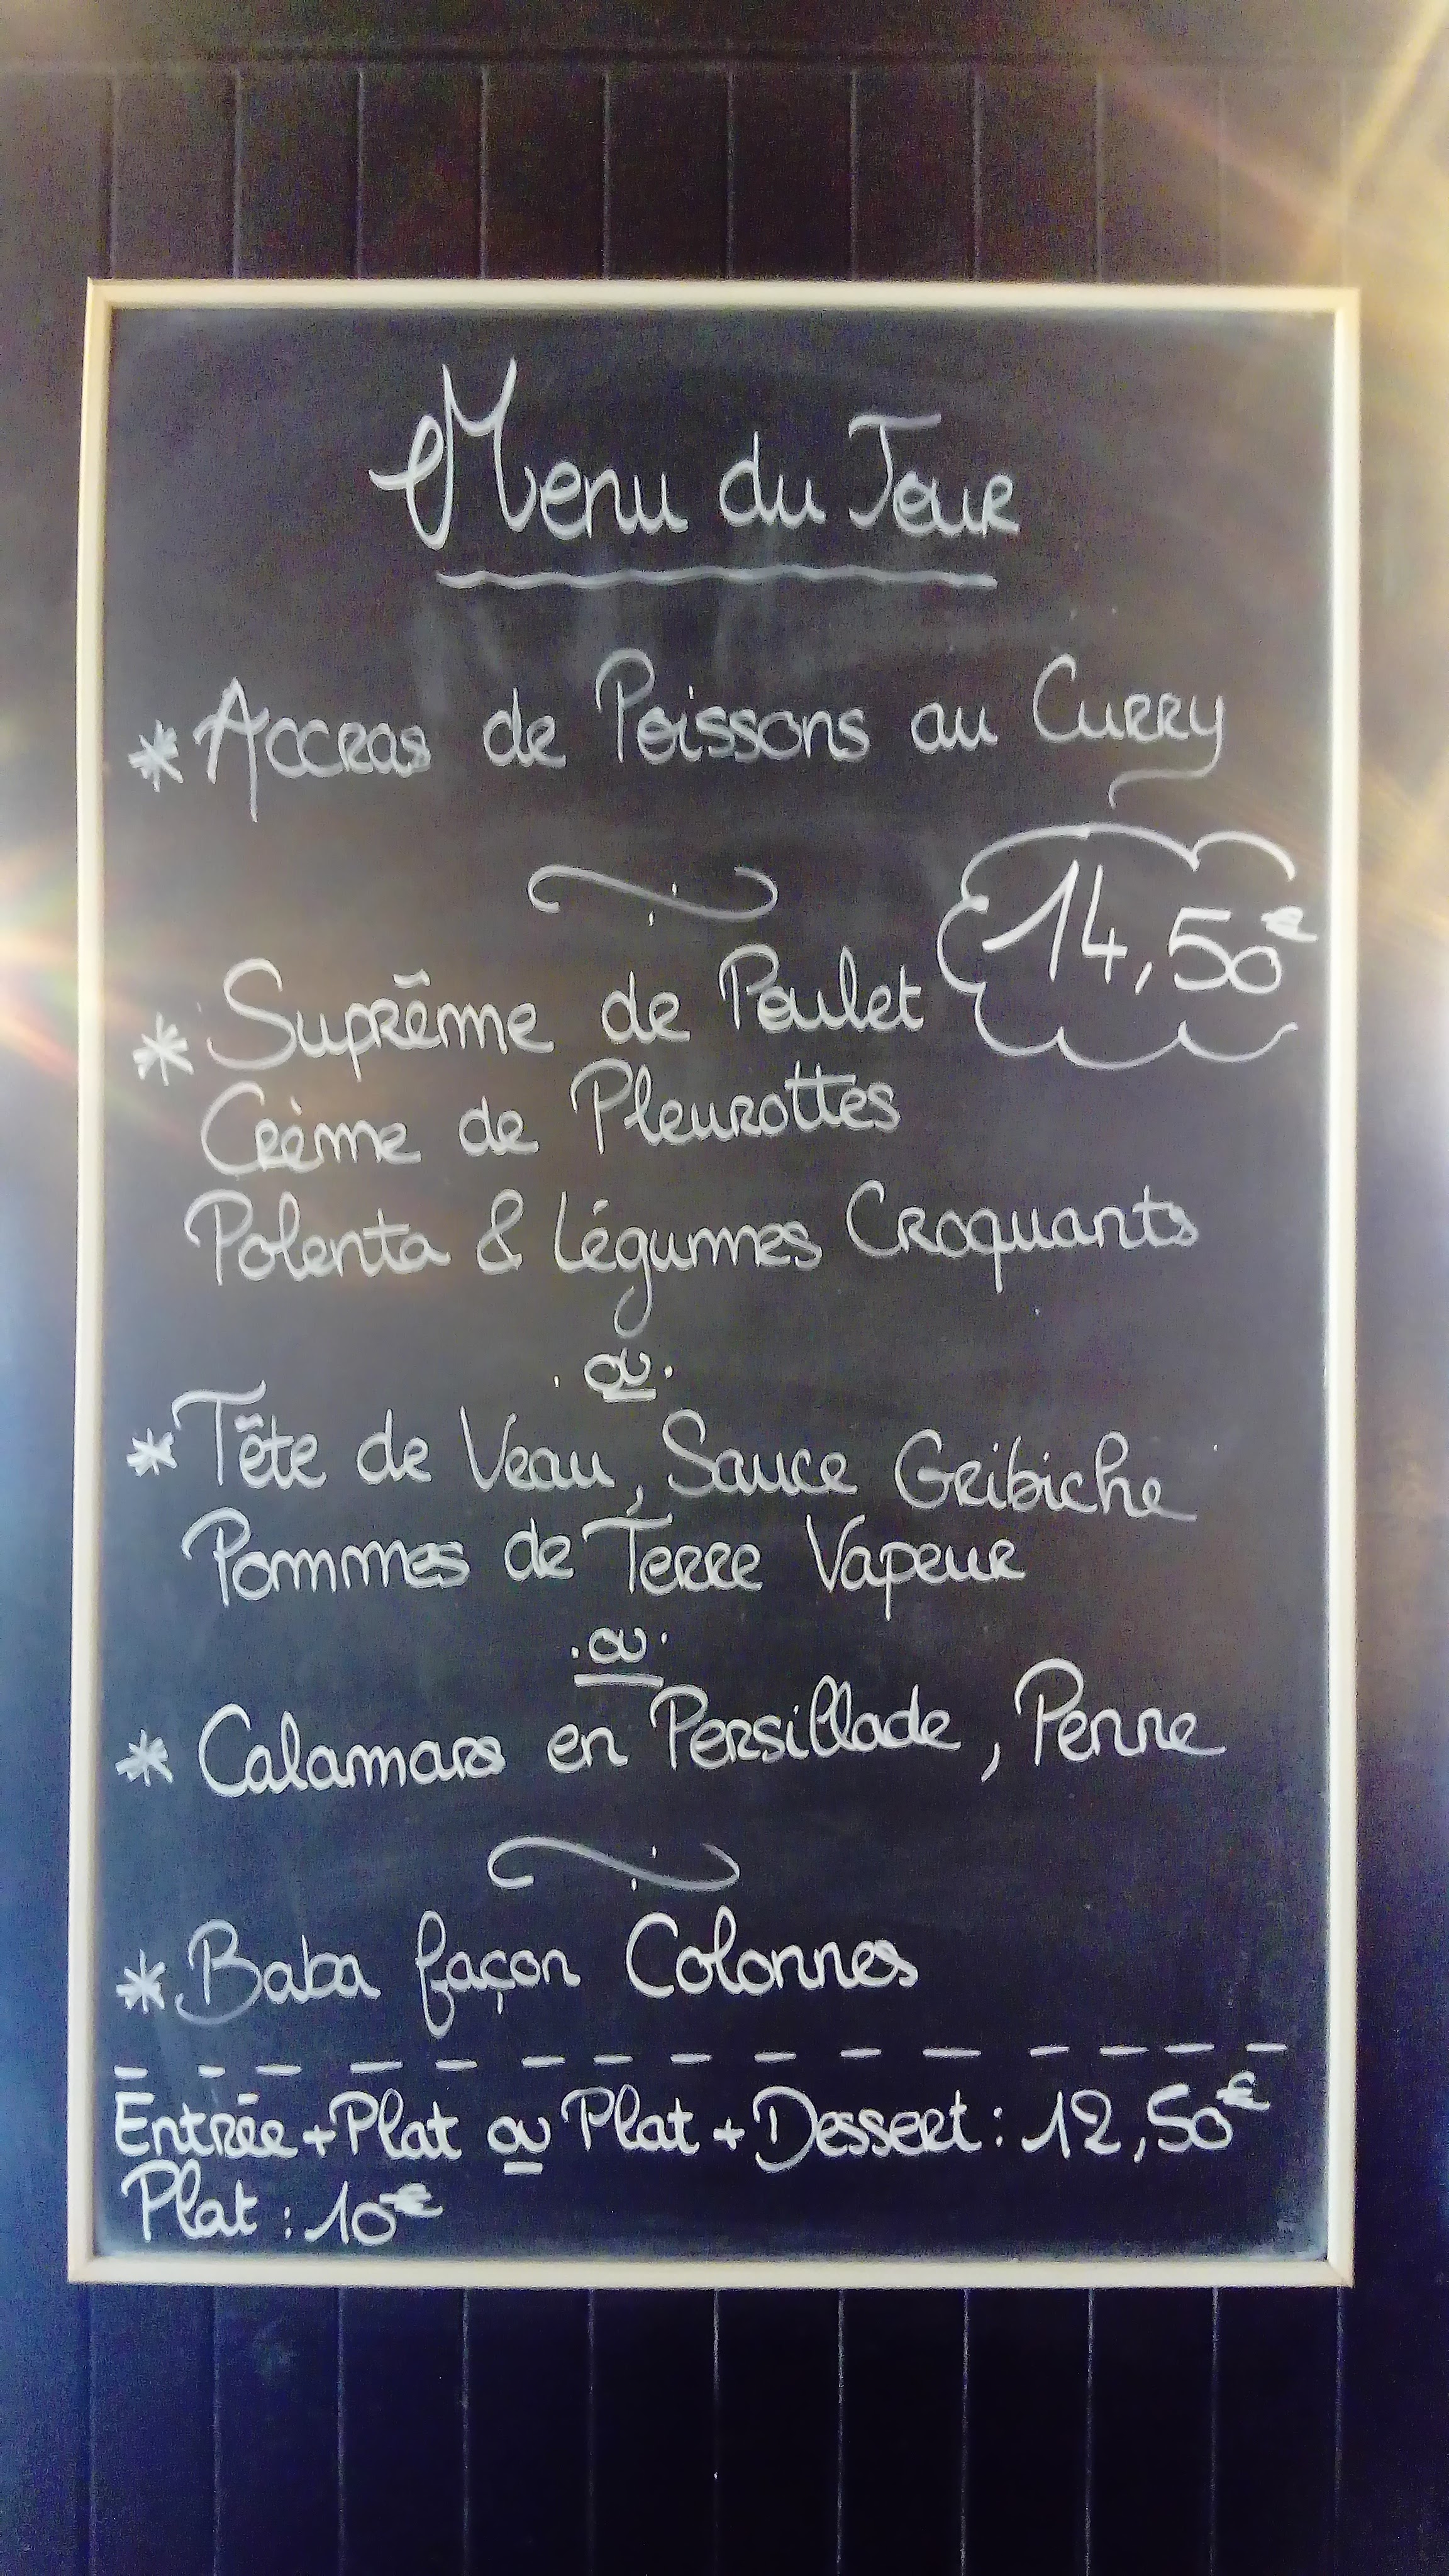 Menu du Jour
* Accras de Poissons au Curry
14,50€
* Suprême de Poulet
Crème de Pleurottes
Polenta & Légumes Croquants
.ou.
* Tête de Veau, Sauce Gribiche
Pommes de Terre Vapeur
.ou.
* Calamars en Persillade, Penne
* Baba façon Colonnes
Entrée + Plat ou Plat + Dessert : 12,50€
Plat : 10€